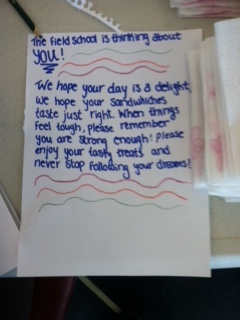 The field school is thinking about
YOU!
We hope your day is a delight,
we hope your sandwhiches
taste just right. When things
feel tough, please remember
you are strong enough! please
enjoy your tasty treats and
never stop following your dreams!